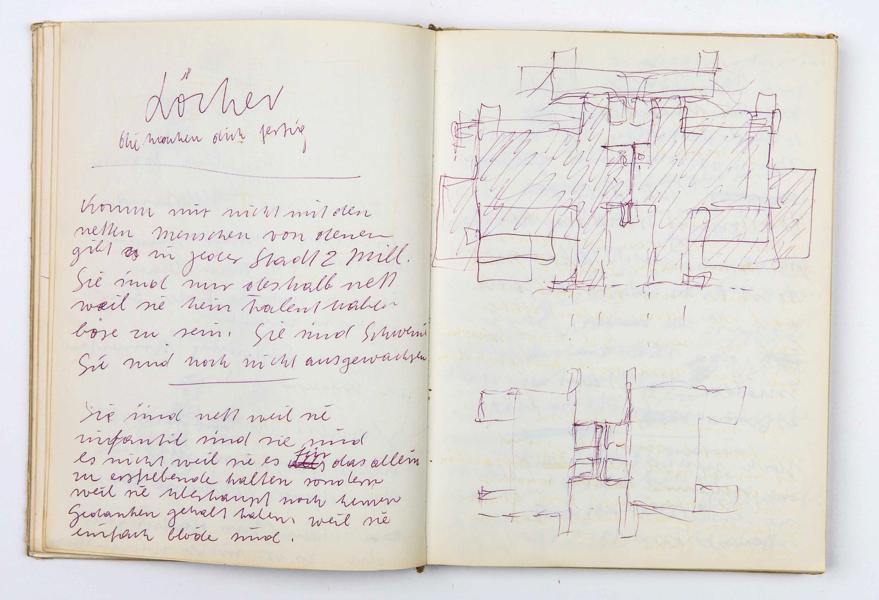 Löcher
die machen dich fertig
Komm mir nicht mit den
netten Menschen von denen
gibt es in jeder Stadt 2 Mill.
Sie sind nur deshalb nett
weil sie kein Talent haben
böse zu sein. Sie sind Schweine
Sie sind noch nicht ausgewachsen
Sie sind nett weil sie
infantil sind sie sind
es nicht weil sie es das allein
zu erstrebende halten sondern
weil sie überhaupt noch keinen
Gedanken gehabt haben, weil sie
einfach blöde sind.